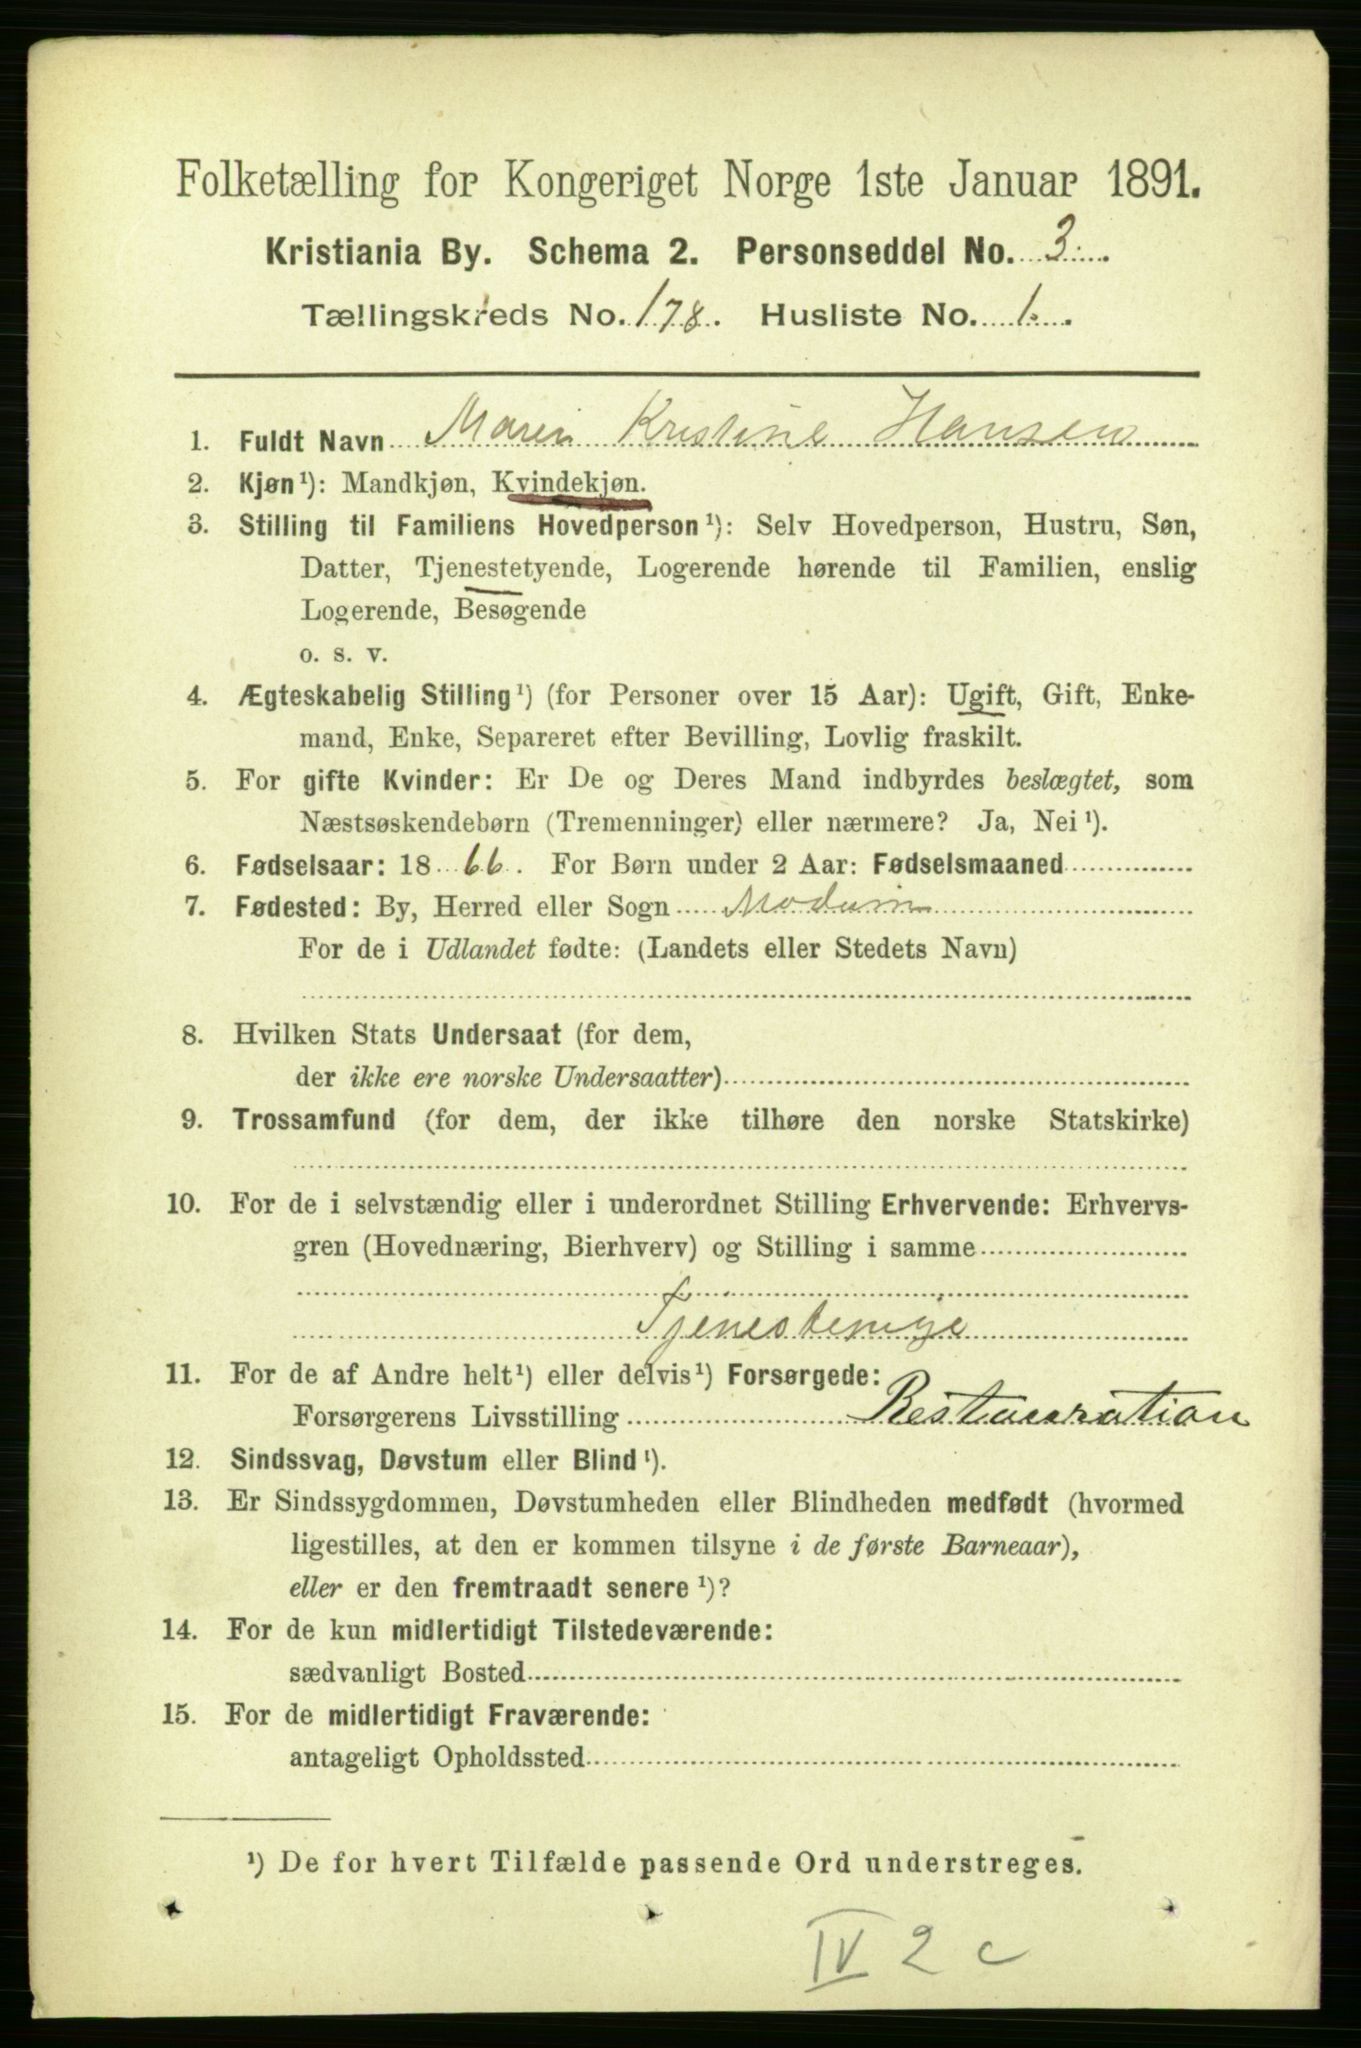 Folketælling for Kongeriget Norge 1ste Januar 1891.
Kristiania By. Schema 2. Personseddel No. 3.
Tællingskreds No. 178. Husliste No. 1.
1. Fuldt Navn Maren Kristine Hansen
2. Kjøn¹): Mandkjøn, Kvindekjøn.
3. Stilling til Familiens Hovedperson¹): Selv Hovedperson, Hustru, Søn,
Datter, Tjenestetyende, Logerende hørende til Familien, enslig
Logerende, Besøgende
o. s. v.
4. Ægteskabelig Stilling¹) (for Personer over 15 Aar): Ugift, Gift, Enke-
mand, Enke, Separeret efter Bevilling, Lovlig fraskilt.
5. For gifte Kvinder: Er De og Deres Mand indbyrdes beslægtet, som
Næstsøskendebørn (Tremenninger) eller nærmere? Ja, Nei¹).
6. Fødselsaar: 1866. For Børn under 2 Aar: Fødselsmaaned
7. Fødested: By, Herred eller Sogn Modum
For de i Udlandet fødte: (Landets eller Stedets Navn)
8. Hvilken Stats Undersaat (for dem,
der ikke ere norske Undersaatter)
9. Trossamfund (for dem, der ikke tilhøre den norske Statskirke)
10. For de i selvstændig eller i underordnet Stilling Erhvervende: Erhvervs-
gren (Hovednæring, Bierhverv) og Stilling i samme
Tjenestepige
11. For de af Andre helt¹) eller delvis¹) Forsørgede:
Forsørgerens Livsstilling Restauration
12. Sindssvag, Døvstum eller Blind¹).
13. Er Sindssygdommen, Døvstumheden eller Blindheden medfødt (hvormed
ligestilles, at den er kommen tilsyne i de første Barneaar),
eller er den fremtraadt senere¹)?
14. For de kun midlertidigt Tilstedeværende:
sædvanligt Bosted
15. For de midlertidigt Fraværende:
antageligt Opholdssted
¹) De for hvert Tilfælde passende Ord understreges.
IV 2 c